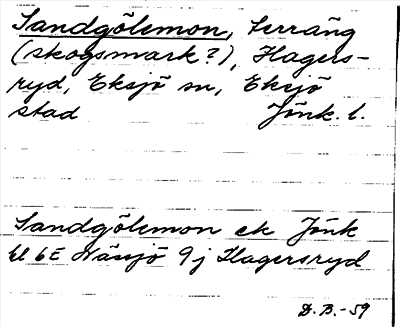 Sandgölemon, terräng
(skogsmark?), Hagers-
ryd, Eksjö sn, Eksjö
stad Jönk. l.
Sandgölemon ek Jönk
bl 6E Nässjö 9j Hagersryd
D.B.-59